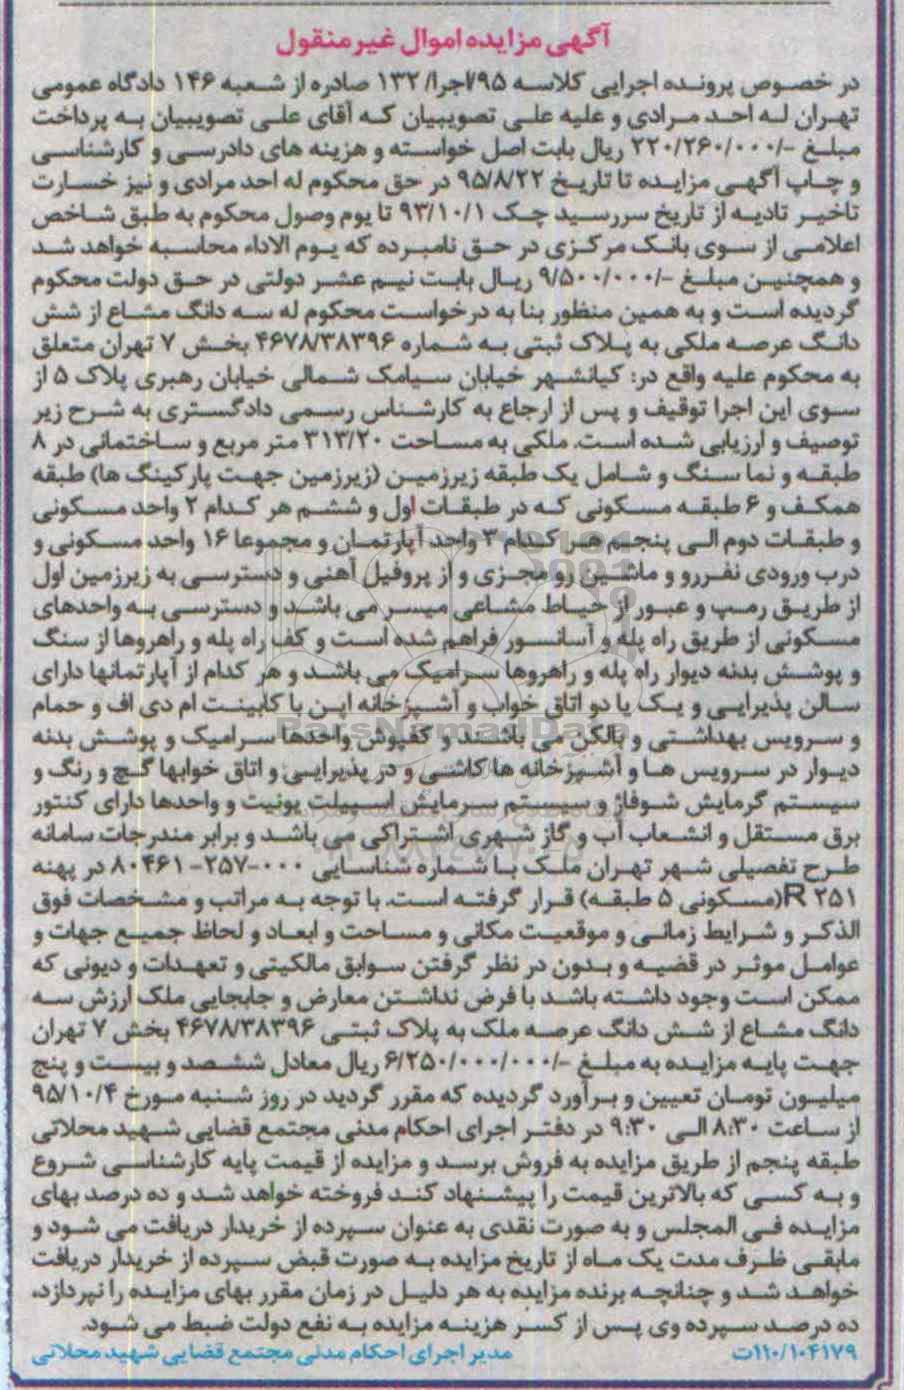 آگهی مزایده اموال غیر منقول
در خصوص پرونده اجرایی کلاسه ۹۵/اجرا/ ۱۳۲ صادره از شعبه ۱۴۶ دادگاه عمومی
تهران له احد مرادی و علیه علی تصویبیان که آقای علی تصویبیان به پرداخت
مبلغ -/۲۲۰/۲۶۰/۰۰۰ ریال بابت اصل خواسته و هزینه های دادرسی و کارشناسی
و چاپ آگهی مزایده تا تاریخ ۹۵/۸/۲۲ در حق محکوم له احد مرادی و نیز خسارت
تاخیر تادیه از تاریخ سررسید چک ۹۳/۱۰/۱ تا یوم وصول محکوم به طبق شاخص
اعلامی از سوی بانک مرکزی در حق نامبرده که یوم الاداء محاسبه خواهد شد
و همچنین مبلغ -/۹/۵۰۰/۰۰۰ ریال بابت نیم عشر دولتی در حق دولت محکوم
گردیده است و به همین منظور بنا به درخواست محکوم له سه دانگ مشاع از شش
دانگ عرصه ملکی به پلاک ثبتی به شماره ۴۶۷۸/۳۸۳۹۶ بخش ۷ تهران متعلق
به محکوم علیه واقع در: کیانشهر خیابان سیامک شمالی خیابان رهبری پلاک ۵ از
سوی این اجرا توقیف و پس از ارجاع به کارشناس رسمی دادگستری به شرح زیر
توصیف و ارزیابی شده است. ملکی به مساحت ۳۱۳/۲۰ متر مربع و ساختمانی در ۸
طبقه و نما سنگ و شامل یک طبقه زیرزمین (زیرزمین جهت پارکینگ ها) طبقه
همکف و ۶ طبقه مسکونی که در طبقات اول و ششم هر کدام ۲ واحد مسکونی
و طبقات دوم الی پنجم هر کدام ۳ واحد آپارتمان و مجموعا ۱۶ واحد مسکونی و
درب ورودی نفررو و ماشین رو مجزی و از پروفیل آهنی و دسترسی به زیرزمین اول
از طریق رمپ و عبور از حیاط مشاعی میسر می باشد و دسترسی به واحدهای
مسکونی از طریق راه پله و آسانسور فراهم شده است و کف راه پله و راهروها از سنگ
و پوشش بدنه دیوار راه پله و راهروها سرامیک می باشد و هر کدام از آپارتمانها دارای
سالن پذیرایی و یک یا دو اتاق خواب و آشپزخانه اپن با کابینت ام دی اف و حمام
و سرویس بهداشتی و بالکن می باشند و کفپوش واحدها سرامیک و پوشش بدنه
دیوار در سرویس ها و آشپزخانه ها کاشی و در پذیرایی و اتاق خوابها گچ و رنگ و
سیستم گرمایش شوفاژ و سیستم سرمایش اسپیلت یونیت و واحدها دارای کنتور
برق مستقل و انشعاب آب و گاز شهری اشتراکی می باشد و برابر مندرجات سامانه
طرح تفصیلی شهر تهران ملک با شماره شناسایی ۰۰۰-۲۵۷-۸۰۴۶۱ در پهنه
R ۲۵۱(مسکونی ۵ طبقه) قرار گرفته است. با توجه به مراتب و مشخصات فوق
الذکر و شرایط زمانی و موقعیت مکانی و مساحت و ابعاد و لحاظ جمیع جهات و
عوامل موثر در قضیه و بدون در نظر گرفتن سوابق مالکیتی و تعهدات و دیونی که
ممکن است وجود داشته باشد با فرض نداشتن معارض و جابجایی ملک ارزش سه
دانگ مشاع از شش دانگ عرصه ملک به پلاک ثبتی ۴۶۷۸/۳۸۳۹۶ بخش ۷ تهران
جهت پایه مزایده به مبلغ -/۶/۲۵۰/۰۰۰/۰۰۰ ریال معادل ششصد و بیست و پنج
میلیون تومان تعیین و برآورد گردیده که مقرر گردید در روز شنبه مورخ ۹۵/۱۰/۴
از ساعت ۸:۳۰ الی ۹:۳۰ در دفتر اجرای احکام مدنی مجتمع قضایی شهید محلاتی
طبقه پنجم از طریق مزایده به فروش برسد و مزایده از قیمت پایه کارشناسی شروع
و به کسی که بالاترین قیمت را پیشنهاد کند فروخته خواهد شد و ده درصد بهای
مزایده فی المجلس و به صورت نقدی به عنوان سپرده از خریدار دریافت می شود و
مابقی ظرف مدت یک ماه از تاریخ مزایده به صورت قبض سپرده از خریدار دریافت
خواهد شد و چنانچه برنده مزایده به هر دلیل در زمان مقرر بهای مزایده را نپردازد،
ده درصد سپرده وی پس از کسر هزینه مزایده به نفع دولت ضبط می شود.
۱۱۰/۱۰۴۱۷۹/ت مدیر اجرای احکام مدنی مجتمع قضایی شهید محلاتی
ParsNamadData